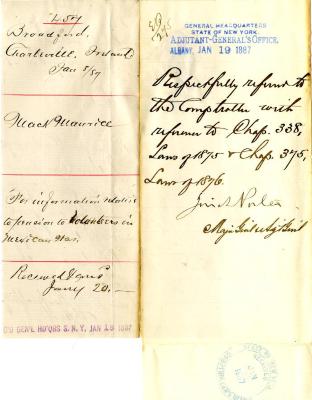 454
Broadford,
Charleville, Ireland
Jan 5/87
Mack Maurice
For information relative
to pension to Volunteers in
Mexican War.
Received Jan'y
20.
G'D GEN'L HD'QRS S. N. Y. JAN 18 1887
GENERAL HEADQUARTERS
STATE OF NEW YORK
ADJUTANT-GENERAL'S OFFICE.
ALBANY, JAN 19 1887
Respectfully referred to
the Comptroller with
reference to Chap. 338,
Laws of 1875 & Chap. 375,
Laws of 1876.
Maj. Gen'l & Adj. Gen'l